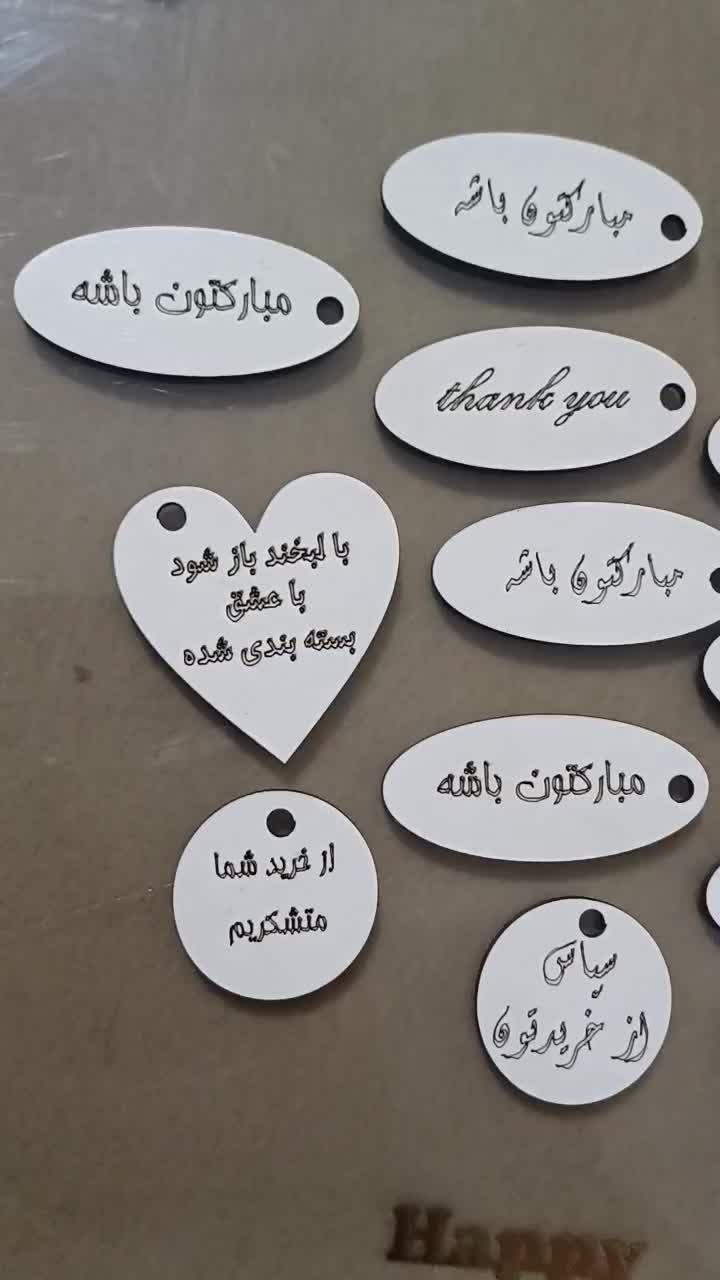 مبارکتون باشه
مبارکتون باشه
thank you
با لبخند باز شود
با عشق
بسته بندی شده
مبارکتون باشه
مبارکتون باشه
از خرید شما
متشکریم
سپاس
از خریدتون
Happy